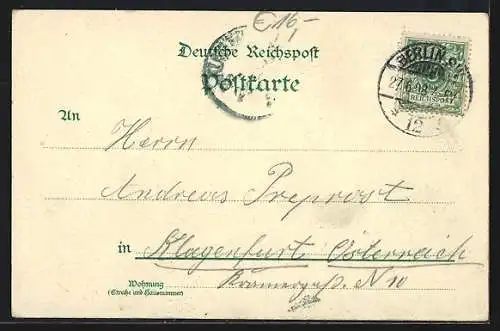 € 16-
Deutsche Reichspost
Postkarte
BERLIN
27.6.98
REICHSPOST
12
An
Herrn
Andreas Preprost
in Klagenfurt Österreich
Wohnung
(Straße und Hausnummer)
N 10